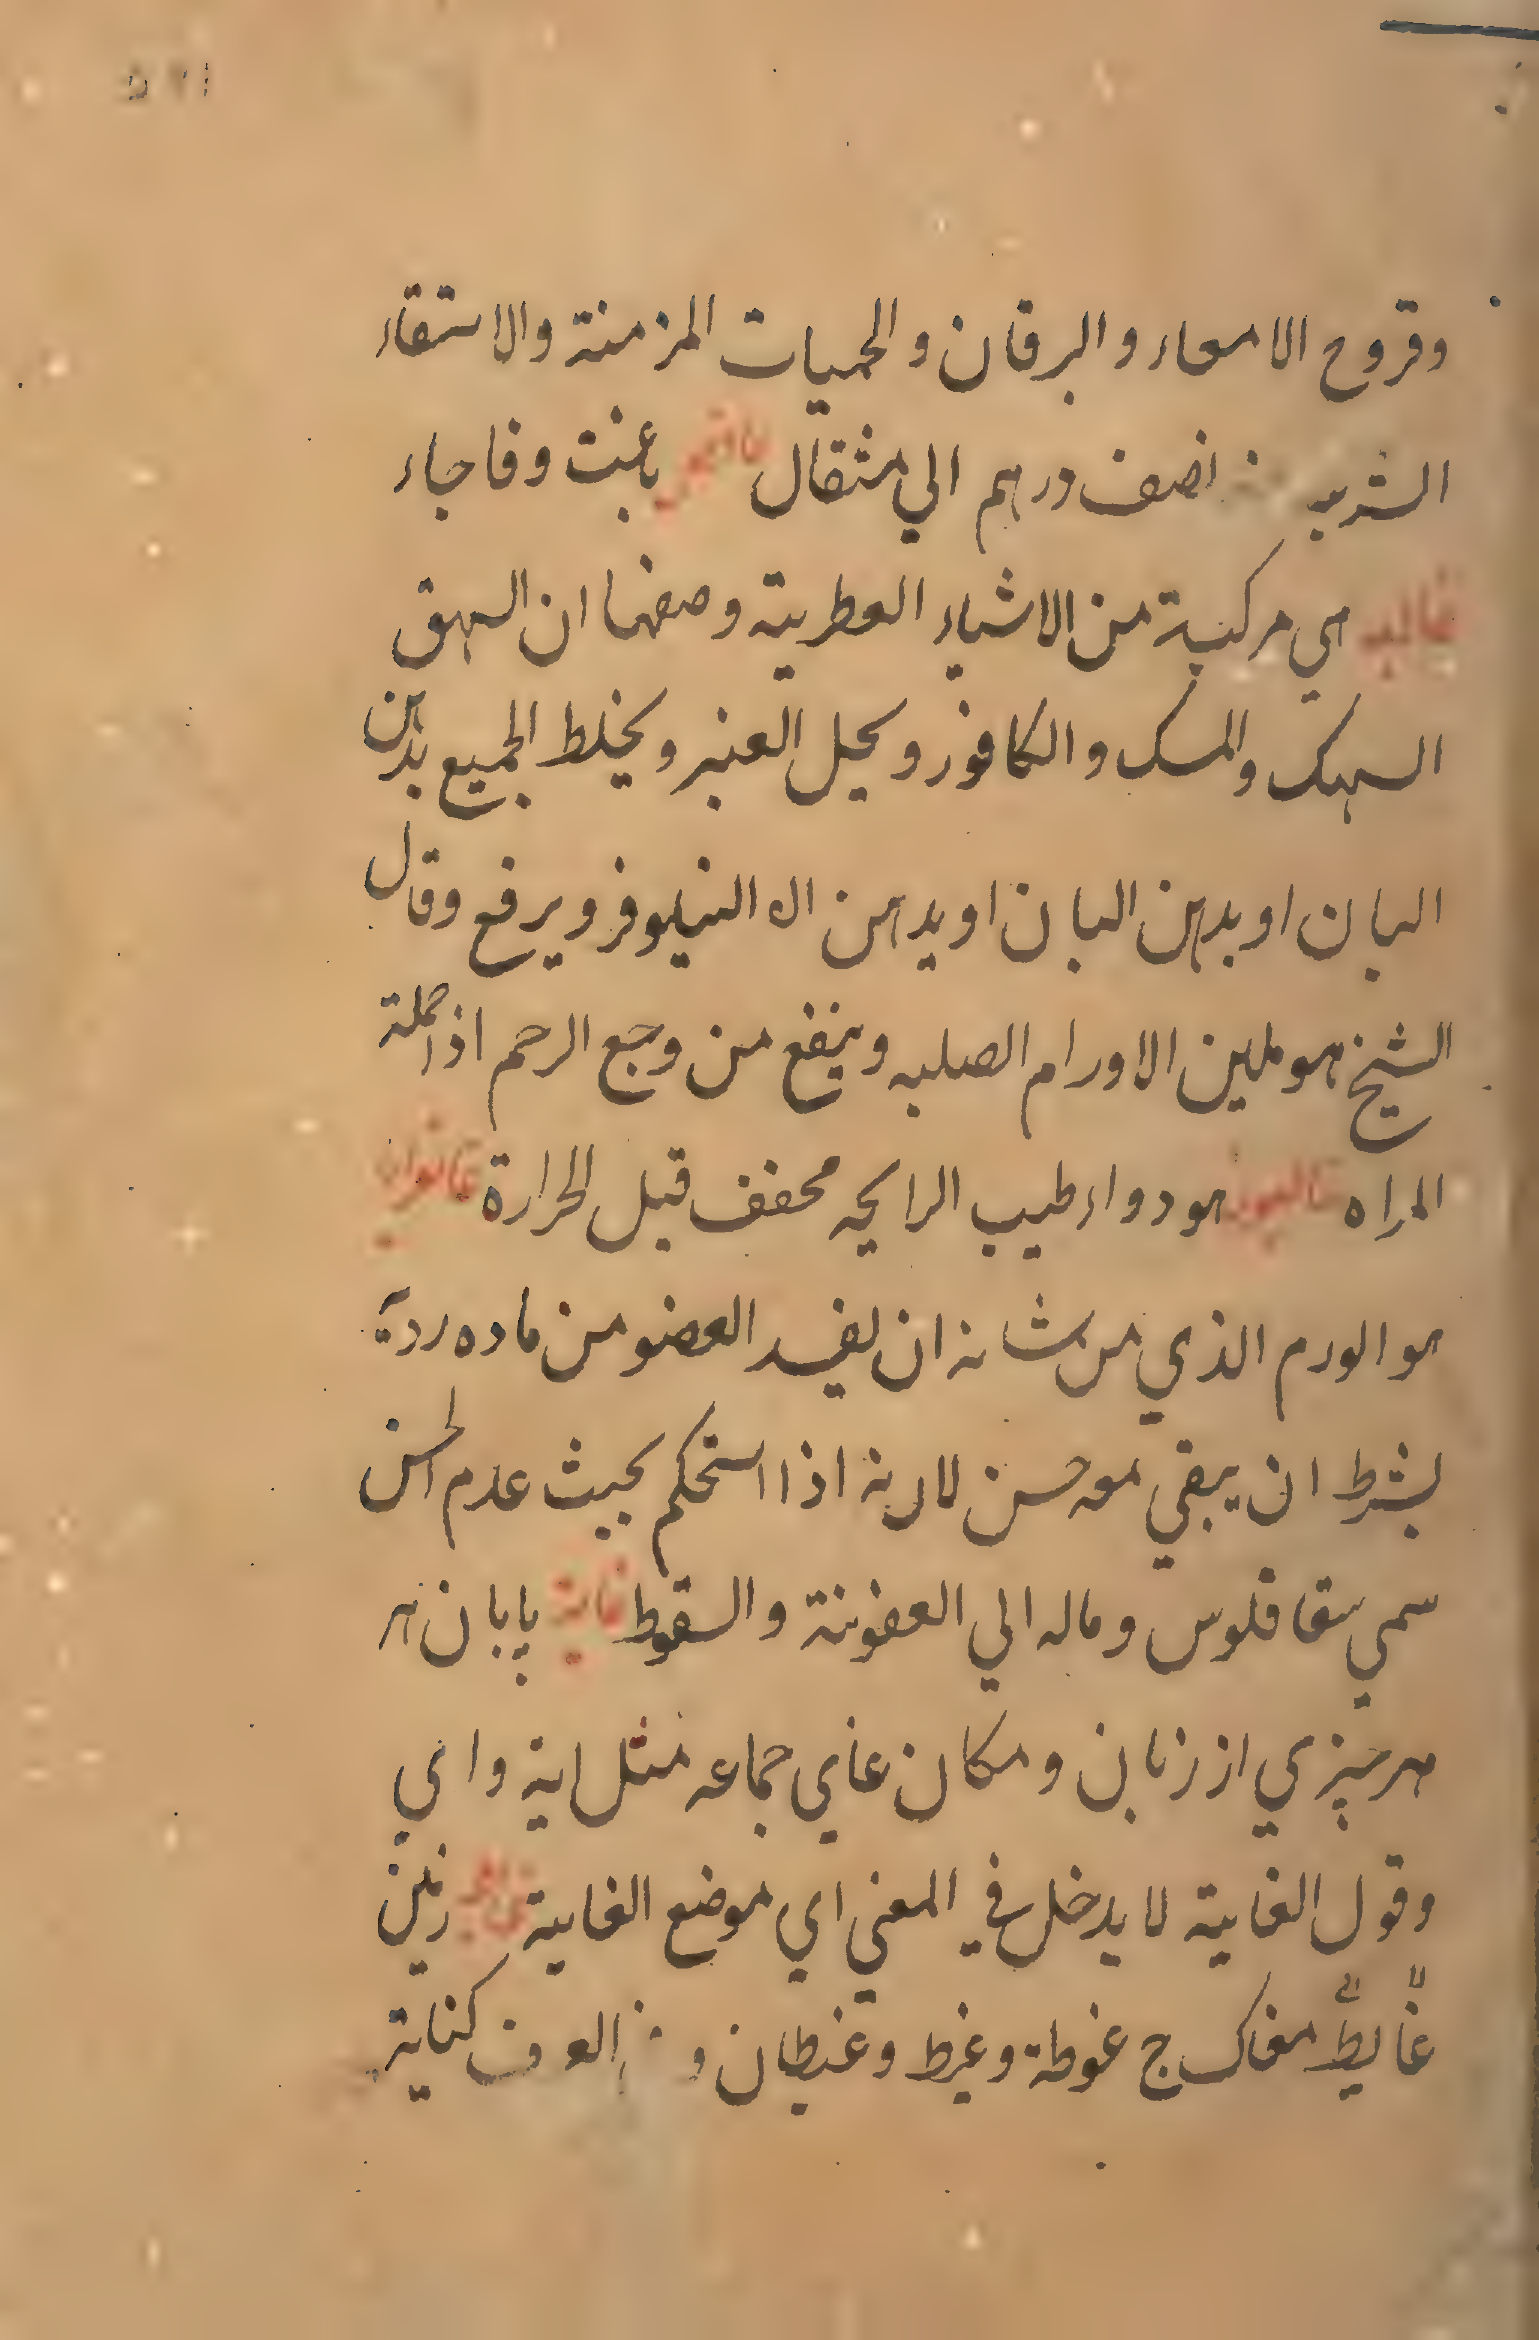 وقروح الامعاء والبرقان والحميات المزمنة والاستقاء
الشربه نصف درهم الي مثقال باغت وفاجاء
غاليه هي مركبة من الاشياء العطرية وصفها ان السهق
السهك والمسك والكافور ويحل العنبر ويخلط الجميع بدهن
البان او بدهن البان او بدهن اله النيلوفر ويرفع وقال
الشيخ هو ملين الاورام الصلبه وينفع من وجع الرحم اذا حملته
المراه هو دواء طيب الرايحه محفف قبل الحرارة غانغرانا
هو الورم الذي من شانه ان يفسد العضو من ماده ردية
بشرط ان يبقي معه حسن لارنه اذا استحكم بحيث عدم الحسن
سمي سقاقلوس وماله الي العفونة والسقوط غاية پايان هر
هر چيزي از زبان ومكان غاي جماعه مثل اية واي
وقول الغاية لا يدخل في المغي اي موضع الغاية زمين
غايط مغاك ج غوطة وغيط وغيطان و العرف كناية